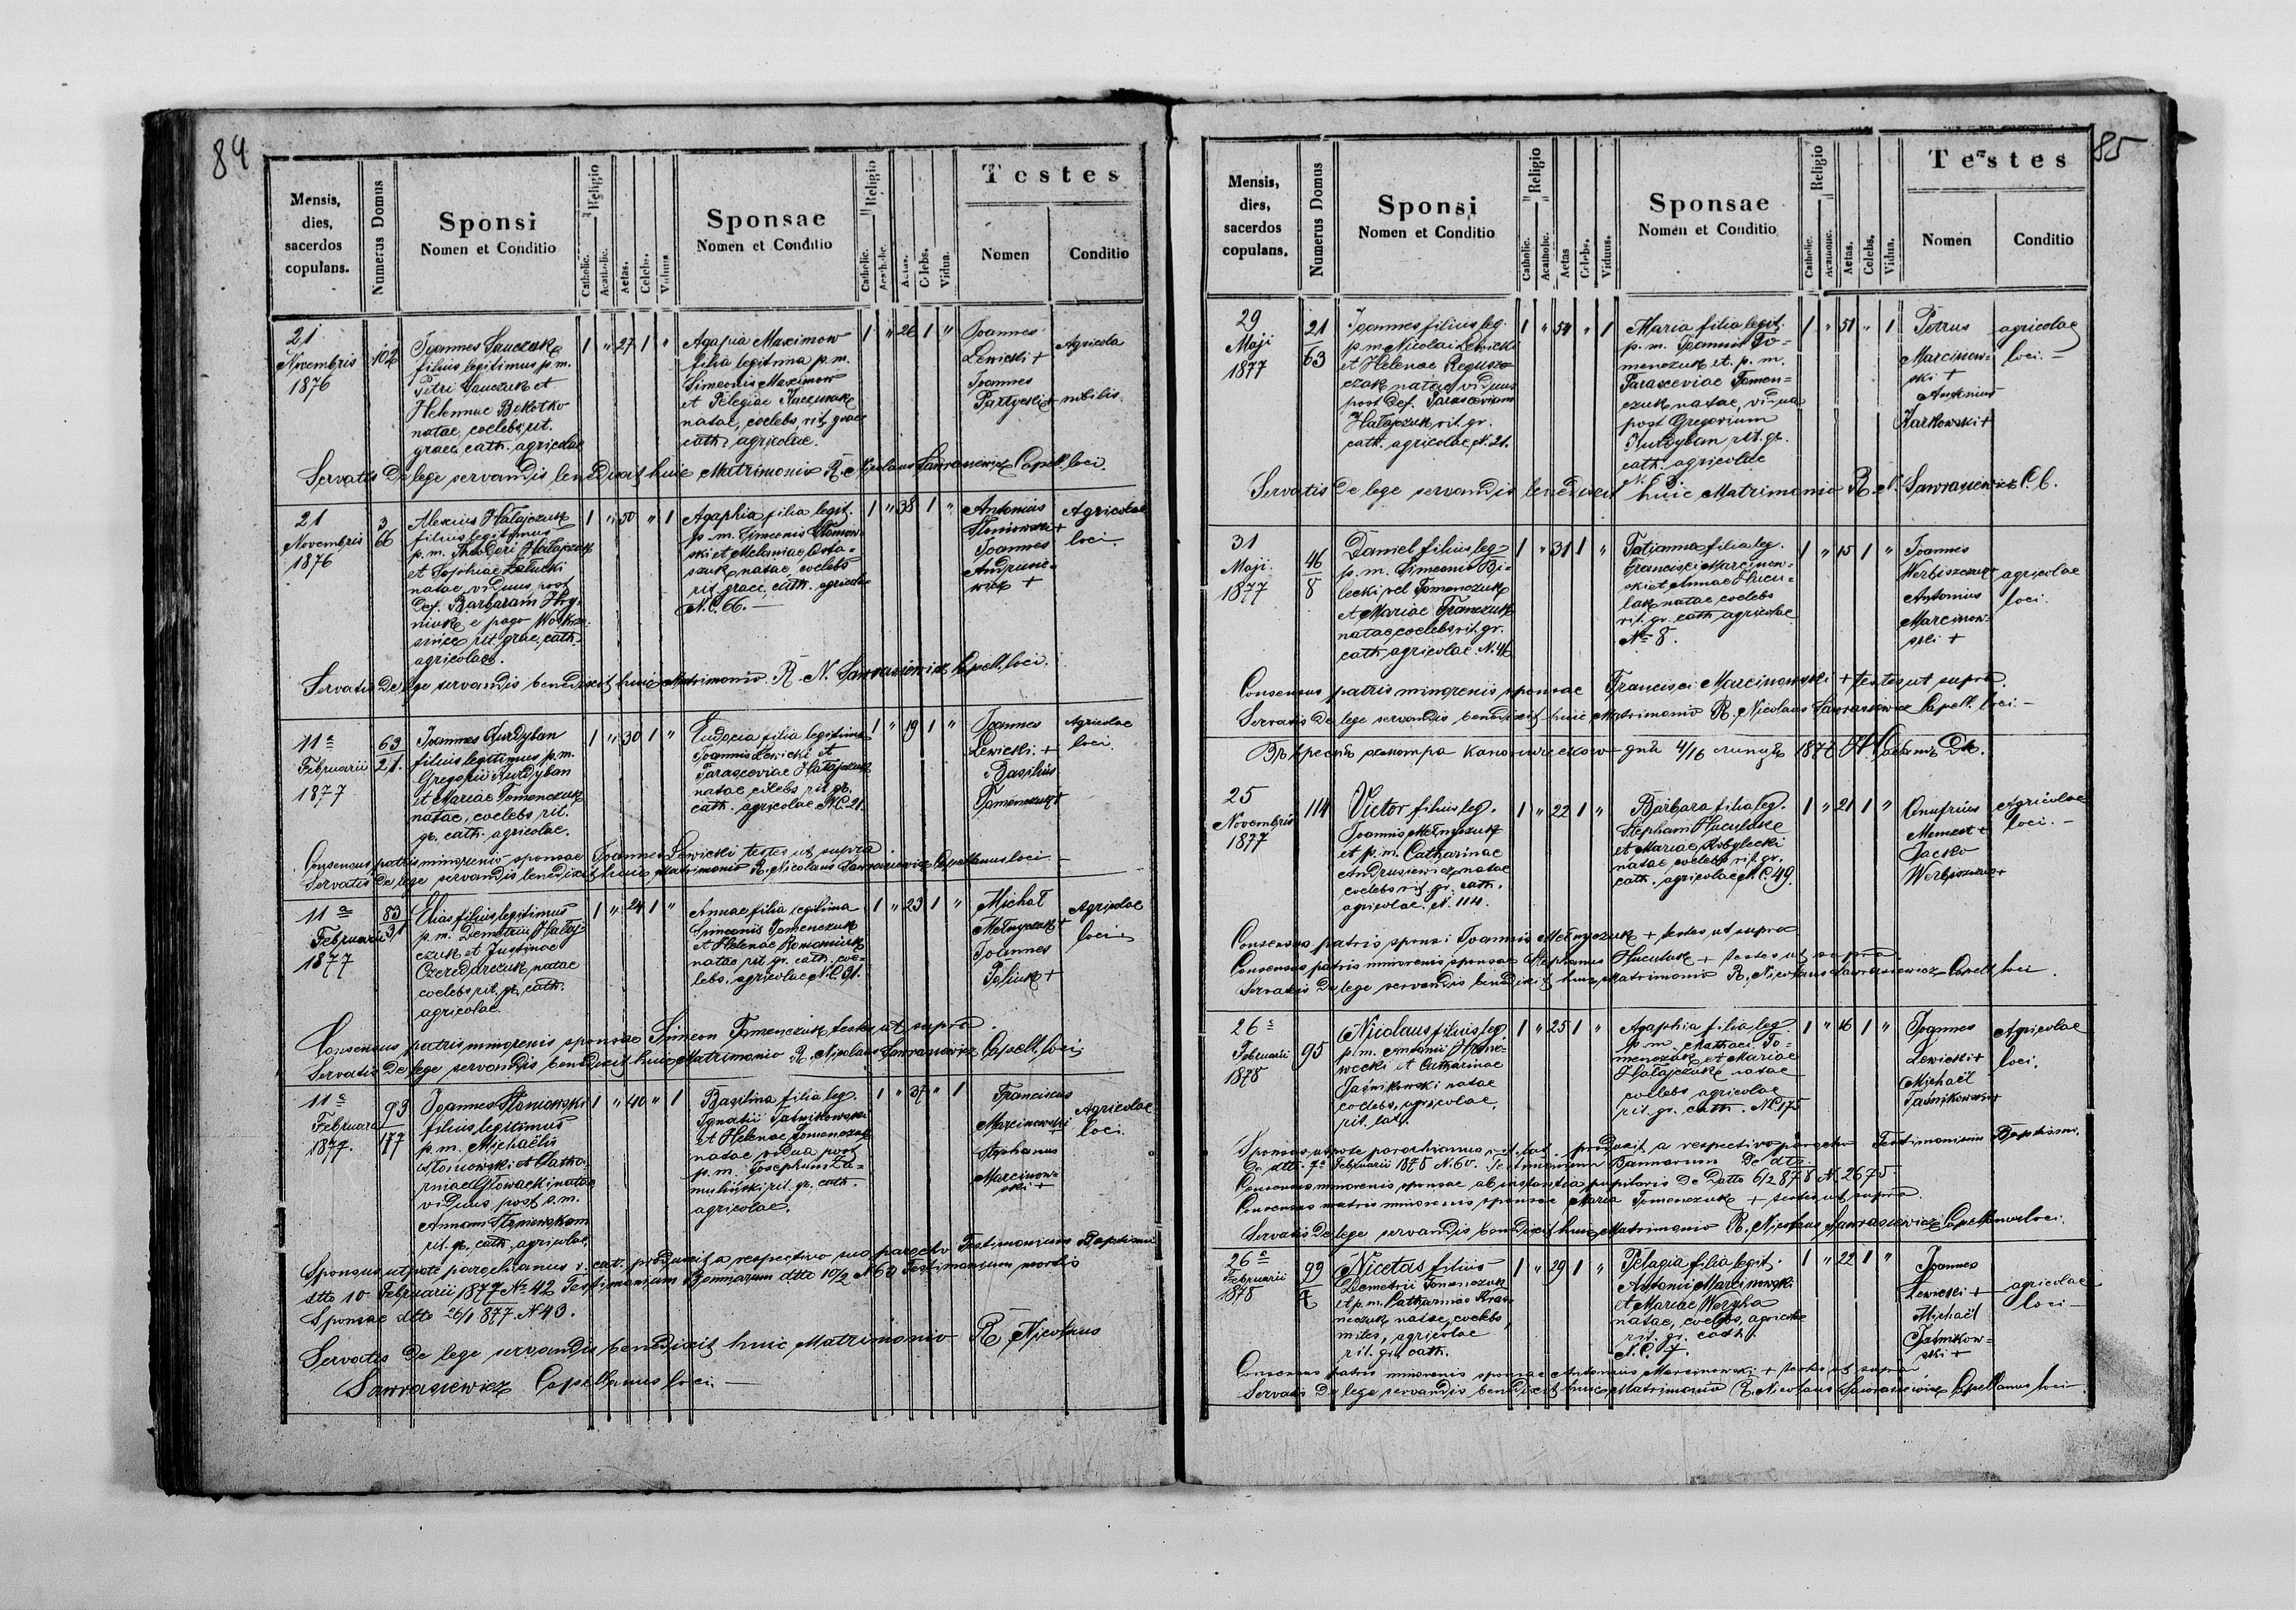 84
Mensis, dies, sacerdos copulans.
Numerus Domus
Sponsi
Nomen et Conditio
Religio
Catholic.
Acatholic.
Aetas.
Celebs.
Viduus
Sponsae
Nomen et Conditio
Religio
Catholic.
Acatholic.
Aetas.
Celebs.
Vidua.
Testes
Nomen
Conditio
21
Novembris
1876
102
Joannes Sauczuk
filius legitimus p. m.
Petri Sauczuk et
Helennae
natae, coelebs, rit.
graec. cath. agricolae
1 " 27 1 "
Agapia Maximow
filia legitima p. m.
Simeonis Maximow
et Pelegiae
natae, coelebs, rit. graec
cath. agricolae.
1 " 26 1 "
Joannes
Lewicki +
Joannes
Partycki +
Agricola
nobilis.
Servatis De lege servandis benedixit huic Matrimonio R. Nicolaus Sawrasiewicz Capell. loci.
21
Novembris
1876
3
66
Alexius Hałajczuk
filius legitimus
p. m. Theodori Hałajczuk
et Sophiae Załucki
natae, viduus post
Def. Barbaram Hry-
niuk e pago
rit. grae. cath.
agricolae.
1 " 50 " 1
Agaphia filia legit.
p. m. Simeonis Słoniow-
ski et Melaniae Osta-
szuk natae, coelebs
rit. graec. cath. agricolae
N. C. 66. —
1 " 38 1 "
Antonius
Słoniowski +
Joannes
Andrusie-
wicz +
Agricolae
loci.
Servatis De lege servandis benedixit huic Matrimonio R. N. Sawrasiewicz Capell. loci.
11a
Februarii
1877
63
21.
Joannes Kurdyban
filius legitimus p. m.
Gregorii Kurdyban
et Mariae Tomenczuk
natae, coelebs, rit.
gr. cath. agricolae.
1 " 30 1 "
Eudocia filia legitima
Joannis Lewicki et
Parasceviae Hałajczuk
natae coelebs rit. gr.
cath. agricolae N. C. 21.
1 " 19 1 "
Joannes
Lewicki +
Basilius
Tomenczuk +
Agricolae
loci.
Consensus patris minorenis sponsae Joannes Lewicki testes ut supra
Servatis De lege servandis benedixit huic Matrimonio R. Nicolaus Sawrasiewicz Capellanus loci —
11a
Februarii
1877
83
31
Elias filius legitimus
p. m. Demetrii Hałaj-
czuk et Justinae
Czeredarczuk natae
coelebs rit. gr. cath.
agricolae.
1 " 24 1 "
Annae filia legitima
Simeonis Tomenczuk
et Helenae Romaniuk
natae rit. gr. cath. coe-
lebs, agricolae N. C. 31.
1 " 23 1 "
Michał
Mełnyczuk +
Joannes
Poliuk +
Agricolae
loci.
Consensus patris minorenis sponsae Simeon Tomenczuk testes ut supra
Servatis De lege servandis benedixit huic Matrimonio R. Nicolaus Sawrasiewicz Capell. loci
11a
Februarii
1877.
93
177
Joannes Słoniowski
filius legitimus
p. m. Michaelis
Słoniowski et Catha-
rinae Głowacki natae
viduus post p. m.
Annam Słoniowskam
rit. gr. cath. agricolae
1 " 40 " 1
Basilina filia leg.
Ignatii Jaśnikowski
et Helenae Tomenczuk
natae vidua post
p. m. Josephum Za-
muliński rit. gr. cath.
agricolae.
1 " 37 " 1
Franciscus
Marcinowski +
Stephanus
Marcinow-
ski +
Agricolae
loci.
Sponsus utpote parochianus r. cat. produxit a respectivo suo parocho Testimonium Baptismi
dtto 10 Februarii 1877 No 42 Testimonium Bannorum dtto 10/2 N 60 Testimonium mortis
Sponsae dtto 26/1 877. N 43.
Servatis De lege servandis benedixit huic Matrimonio R. Nicolaus
Sawrasiewicz Capellanus loci. —
85
Mensis, dies, sacerdos copulans.
Numerus Domus
Sponsi
Nomen et Conditio
Religio
Catholic.
Acatholic.
Aetas
Celebs.
Viduus.
Sponsae
Nomen et Conditio
Religio
Catholic.
Acatholic.
Aetas.
Celebs.
Vidua.
Testes
Nomen
Conditio
29
Maji
1877
21
63
Joannes filius leg.
p. m. Nicolai Lewicki
et Helenae
natae, viduus
post Def. Parasceviam
Hałajczuk, rit. gr.
cath. agricolae, N. 21.
1 " 54 " 1
Maria filia legit.
p. m. Joannis To-
menczuk et p. m.
Parasceviae Tomen-
czuk natae, vidua
post Gregorium
Kurdyban rit. gr.
cath. agricolae
1 " 51 " 1
Petrus
Marcinow-
ski +
Antonius
Karkowski +
agricolae
loci. —
Servatis De lege servandis benedixit huic Matrimonio R. N. Sawrasiewicz C. l.
31
Maji
1877
46
8
Daniel filius leg.
p. m. Simeonis Bi-
lecki vel Tomenczuk
et Mariae Franczuk
natae, coelebs, rit. gr.
cath. agricolae. N. 46
1 " 31 1 "
Tatianna filia leg.
Francisci Marcinow-
ski et Annae Hucu-
lak natae coelebs
rit. gr. cath. agricolae
No 8.
1 " 15 1 "
Joannes
Werbiszczuk +
Antonius
Marcinow-
ski +
agricolae
loci.
Consensus patris minorenis sponsae Francisci Marcinowski + testes ut supra.
Servatis De lege servandis benedixit huic Matrimonio R. Nicolaus Sawrasiewicz Capell. loci. —
4/16 1877
25
Novembris
1877
114
Victor filius leg.
Joannis Mełnyczuk
et p. m. Catharinae
Andrusiewicz natae
coelebs rit. gr. cath.
agricolae. N. 114.
1 " 22 1 "
Barbara filia leg.
Stephani Huculak
et Mariae Kobylecki
natae coelebs rit. gr.
cath. agricolae N. C. 49.
1 " 21 1 "
Onufrius
Memest +
Jacko
Werbiszczuk +
Agricolae
loci. —
Consensus patris sponsi Joannis Mełnyczuk + testes ut supra
Consensus patris minorenis sponsae Stephanus Huculak + testes ut supra
Servatis De lege servandis benedixit huic Matrimonio R. Nicolaus Sawrasiewicz Capell. loci.
26a
Februarii
1878
95
Nicolaus filius leg.
p. m. Antonii
et Catharinae
Jaśnikowski natae
coelebs, agricolae,
rit. lat.
1 " 25 1 "
Agaphia filia leg.
p. m. Mathaei To-
menczuk et Mariae
Hałajczuk natae
coelebs agricolae
rit. gr. cath. N. C 175
1 " 16 1 "
Joannes
Lewicki +
Michaël
Jaśnikowski +
Agricolae
loci.
Sponsus utpote parochianus rit. lat. produxit a respectivo parocho Testimonium Baptismi.
De dtto. 7a Februarii 1878 N. 60. Testimonium Bannorum De dtto.
Consensus minorenis sponsae ab instantia pupilaris De Datto 6/2 878 N. 2675
Consensus matris minorenis sponsae Maria Tomenczuk + testes ut supra.
Servatis De lege servandis benedixit huic Matrimonio R. Nicolaus Sawrasiewicz Capellanus loci.
26a
Februarii
1878
99
7
Nicetas filius
Demetrii Tomenczuk
et p. m. Catharinae
natae, coelebs,
miles, agricolae
rit. gr. cath.
1 " 29 1 "
Pelagia filia legit.
Antonii Marcinowski
et Mariae
natae, coelebs, agricolae
rit. gr. cath.
N. C. 7.
1 " 22 1 "
Joannes
Lewicki +
Michaël
Jaśnikow-
ski +
agricolae
loci —
Consensus patris minorenis sponsae Antonius Marcinowski + testes ut supra
Servatis De lege servandis benedixit huic Matrimonio R. Nicolaus Sawrasiewicz Capellanus loci